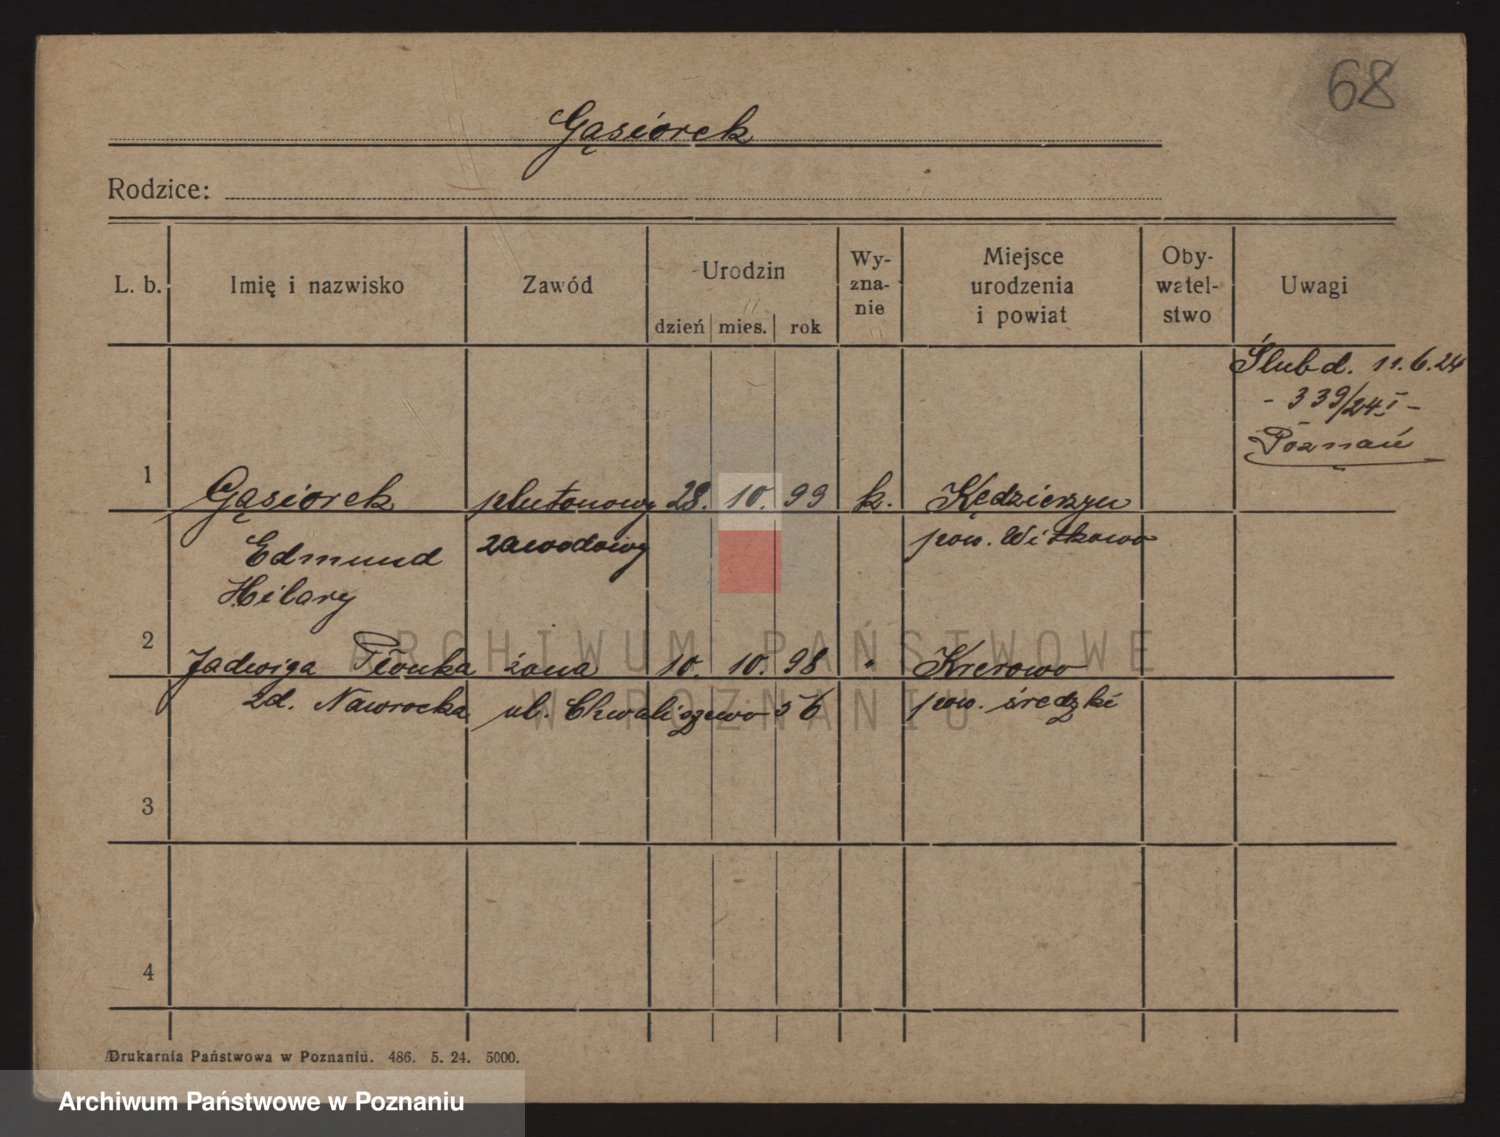 68
Gąsiorek
Rodzice:
L. b. Imię i nazwisko Zawód Urodzin Wy-zna-nie Miejsce urodzenia i powiat Oby-watel-stwo Uwagi
dzień mies. rok
Ślub d. 11.6.24
- 339/24 I -
Poznań
1 Gąsiorek plutonowy 28. 10. 99 k. Kędzierzyn
Edmund zawodowy pow. Witkowo
Hilary
2 Jadwiga żona 10. 10. 98 " Krerowo
zd. Nawrocka ul. Chwaliszewo 56 pow. średzki
3
4
ARCHIWUM PAŃSTWOWE
W POZNANIU
Drukarnia Państwowa w Poznaniu. 486. 5. 24. 5000.
Archiwum Państwowe w Poznaniu